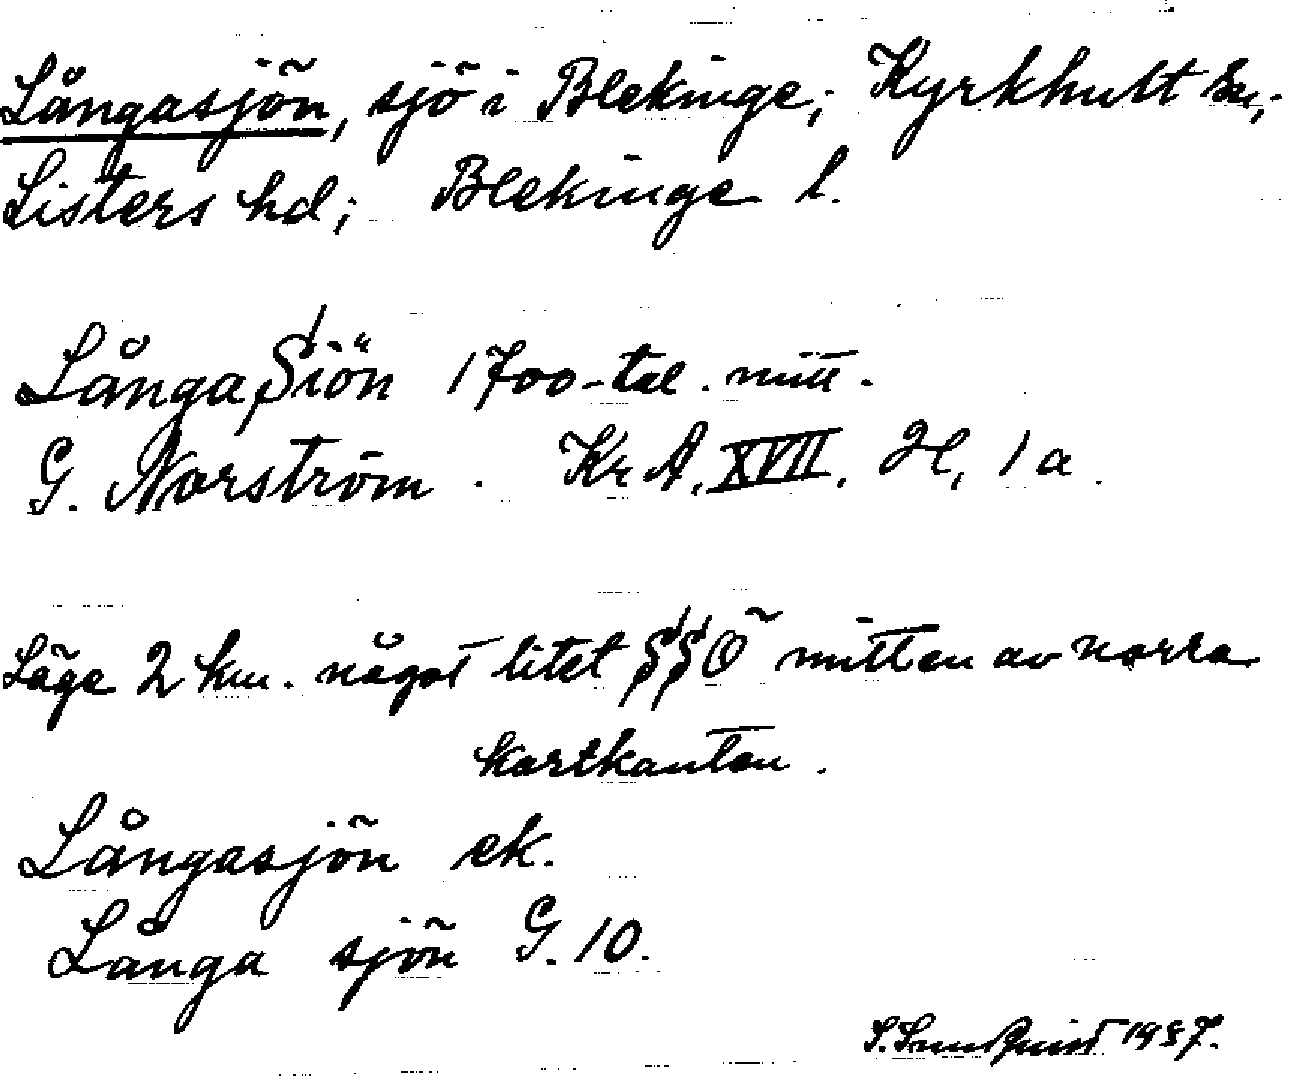 Långasjön, sjö i Blekinge; Kyrkhult sn,;
Listers hd; Blekinge l.
Långa Siön 1700-tal. mitt.
G. Norström. Kr A, XVII, H, 1a.
Läge 2 km. något litet SSÖ mitten av norra
kartkanten.
Långasjön ek.
Långa sjön G. 10.
S. 1937.